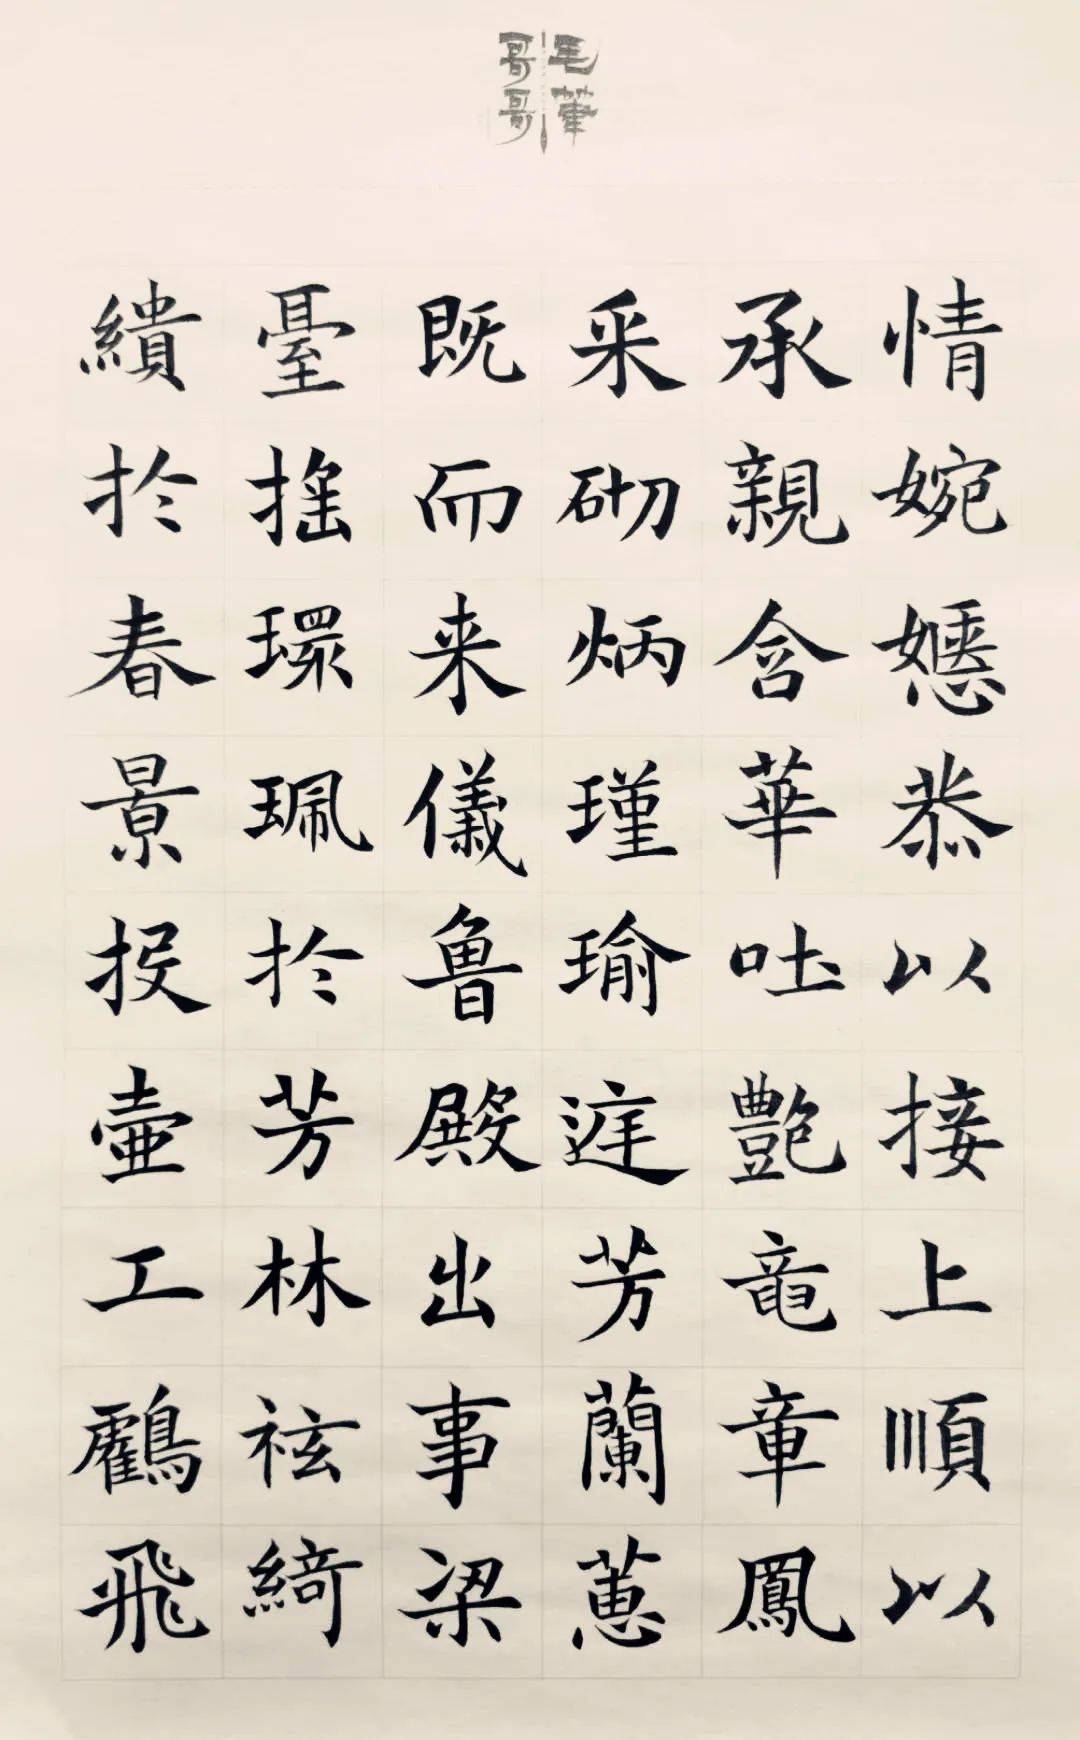 毛筆
哥哥
情婉嬺恭以接上順以
承親含華吐艷竜章鳳
采砌炳瑾瑜庭芳蘭蕙
既而来儀魯殿出事梁
臺搖環珮扵芳林袨綺
繢扵春景投壺工鸖飛